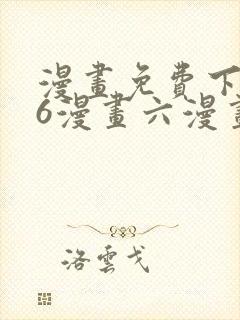 漫畫免費下
6漫畫六漫畫
洛雲戈